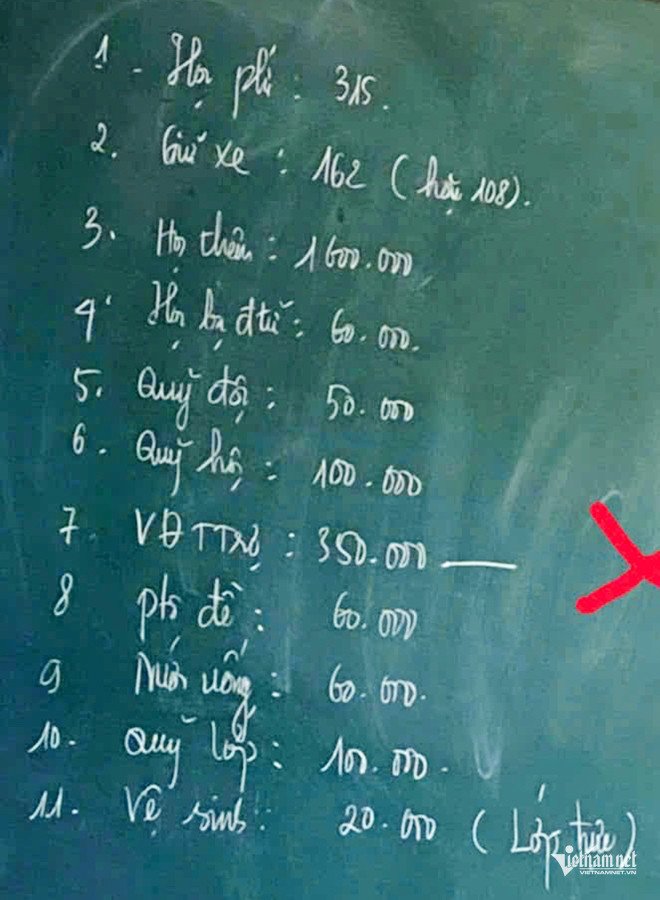 1 - Học phí : 315.
2. Giữ xe : 162 ( hoặc 108).
3. Học thêm : 1600.000
4. Học bạ đ tử : 60.000.
5. Quỹ đội : 50.000
6. Quỹ hội : 100.000
7. VĐ TTrợ : 350.000
8 phô đề : 60.000
9 Nước uống : 60.000.
10. Quỹ lớp : 100.000.
11. Vệ sinh : 20.000 ( Lớp
vietnamnet
VIETNAMNET.VN